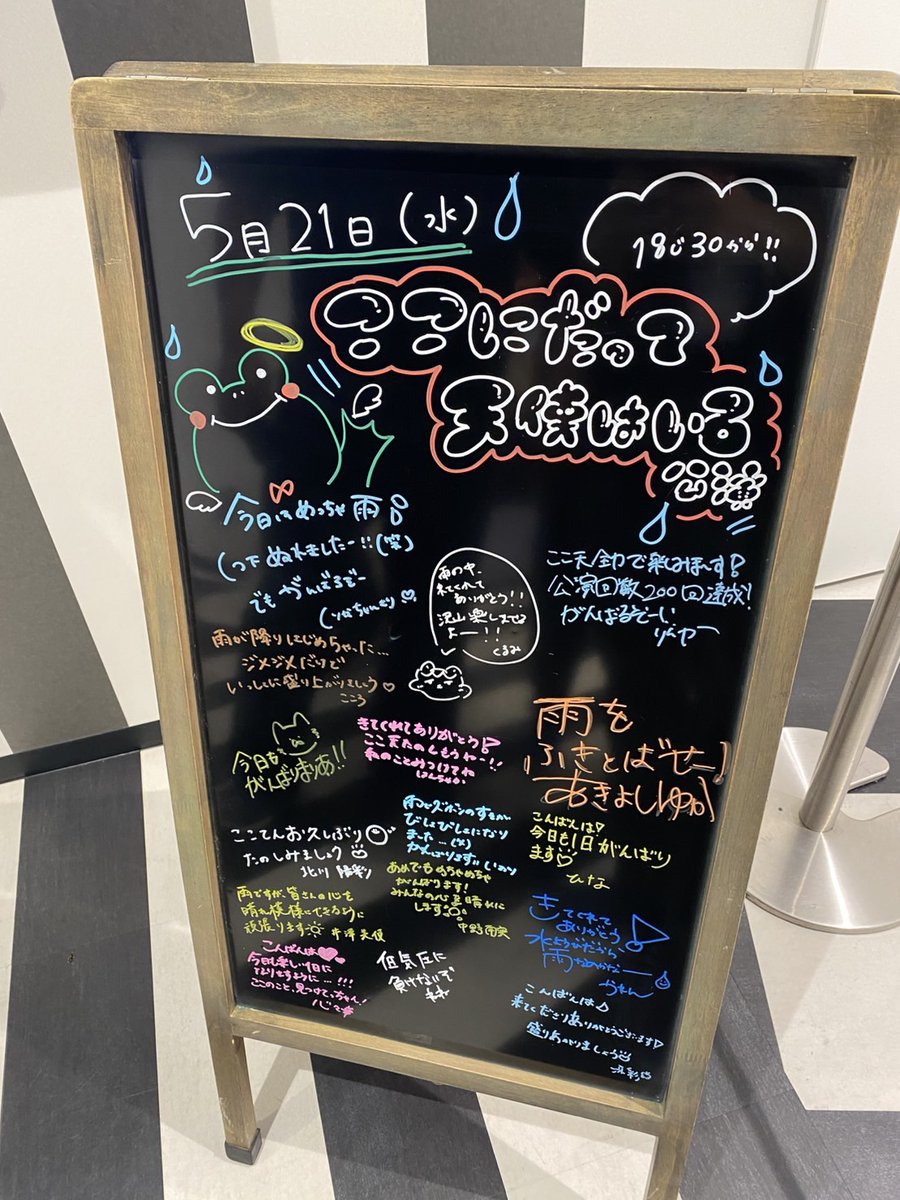 5月21日(水)
18じ30から!!
ここにだって
天使はいる
公演
今日はめっちゃ雨
くつ下ぬれましたー!!(笑)
でもがんばるぞー
雨の中、
来てくれて
ありがとう!!
沢山楽しませる
よー!!
くるみ
公演回数200回達成!
がんばるぞーい
雨が降りはじめちゃった...
ジメジメだけど
いっしょに盛り上がりましょう♡
こころ
雨を
ふきとばせー!
あきよしゆか
きてくれてありがとう!
ここ天たのしもうねー!!
私のことみつけてね
今日も
がんばりまりあ!!
雨でズボンのすそが
びしょびしょになり
ました...(笑)
がんばります
こんばんは!
今日も1日がんばり
ます♡
ひな
ここてんお久しぶり
たのしみましょう
北川 陽彩
あめでもめちゃめちゃ
がんばります!
みんなの心を晴れに
します
中野南実
雨ですが、皆さんの心を
晴れ模様にできるように
頑張ります
井澤美優
きてくれて
ありがとう!
水ようびだから
雨なのかなー
かれん
こんばんは
今日も楽しい1日に
なりますように...!!!
ここのこと、見つけてっちゃん!
心々華
低気圧に
負けないぞ
こんばんは♪
来てくださりありがとうございます!
盛りあがりましょう